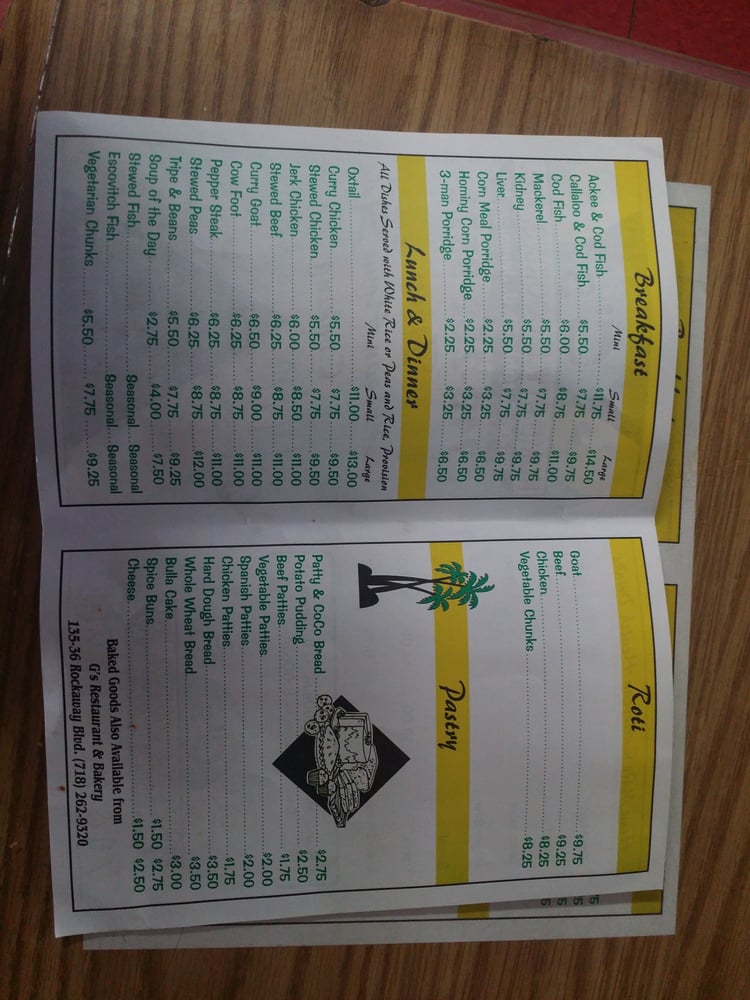 Breakfast
Mini Small Large
Ackee & Cod Fish $11.75 $14.50
Callabo & Cod Fish $5.50 $7.75 $9.75
Cod Fish $6.00 $8.75 $11.00
Mackerel $5.50 $7.75 $9.75
Kidney $5.50 $7.75 $9.75
Liver $5.50 $7.75 $9.75
Corn Meal Porridge $2.25 $3.25 $6.50
Hominy Corn Porridge $2.25 $3.25 $6.50
3-man Porridge $2.25 $3.25 $6.50
Lunch & Dinner
All Dishes Served with White Rice or Peas and Rice, Provision
Mini Small Large
Oxtail $11.00 $13.00
Curry Chicken $5.50 $7.75 $9.50
Stewed Chicken $5.50 $7.75 $9.50
Jerk Chicken $6.00 $8.50 $11.00
Stewed Beef $6.25 $8.75 $11.00
Curry Goat $6.50 $9.00 $11.00
Cow Foot $6.25 $8.75 $11.00
Pepper Steak $6.25 $8.75 $11.00
Stewed Peas $6.25 $8.75 $12.00
Tripe & Beans $5.50 $7.75 $9.25
Soup of the Day $2.75 $4.00 $7.50
Stewed Fish Seasonal Seasonal
Escovitch Fish Seasonal Seasonal
Vegetarian Chunks $5.50 $7.75 $9.25
Roti
Goat $9.75
Beef $9.25
Chicken $8.25
Vegetable Chunks $8.25
Pastry
Patty & CoCo Bread $2.75
Potato Pudding $2.50
Beef Patties $1.75
Vegetable Patties $2.00
Spanish Patties $2.00
Chicken Patties $1.75
Hard Dough Bread $3.50
Whole Wheat Bread $3.50
Bulla Cake $3.00
Spice Buns $1.50 $2.75
Cheese $1.50 $2.50
Baked Goods Also Available from
G's Restaurant & Bakery
135-36 Rockaway Blvd. (718) 262-9320